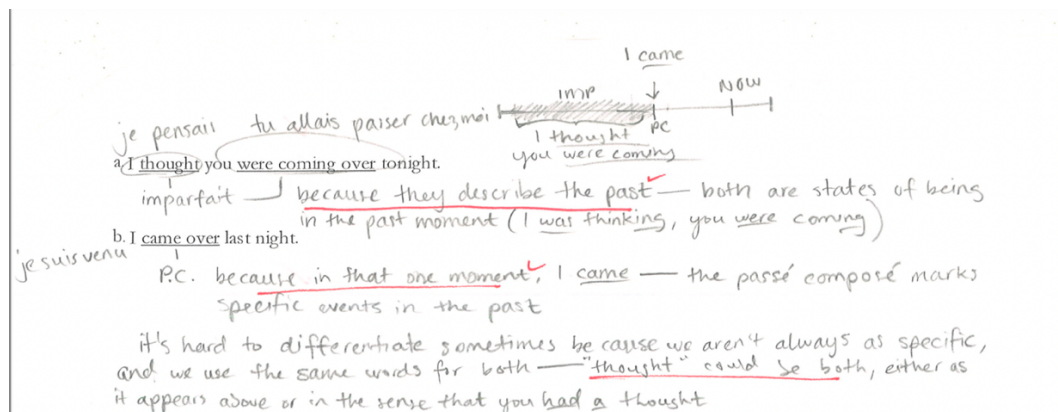 I came
IMP
NOW
PC
I thought
you were coming
je pensais tu allais passer chez moi
a. I thought you were coming over tonight.
imparfait because they describe the past — both are states of being
in the past moment (I was thinking, you were coming)
b. I came over last night.
je suis venu
P.C. because in that one moment, I came — the passé composé marks
specific events in the past
it's hard to differentiate sometimes because we aren't always as specific,
and we use the same words for both — "thought" could be both, either as
it appears above or in the sense that you had a thought